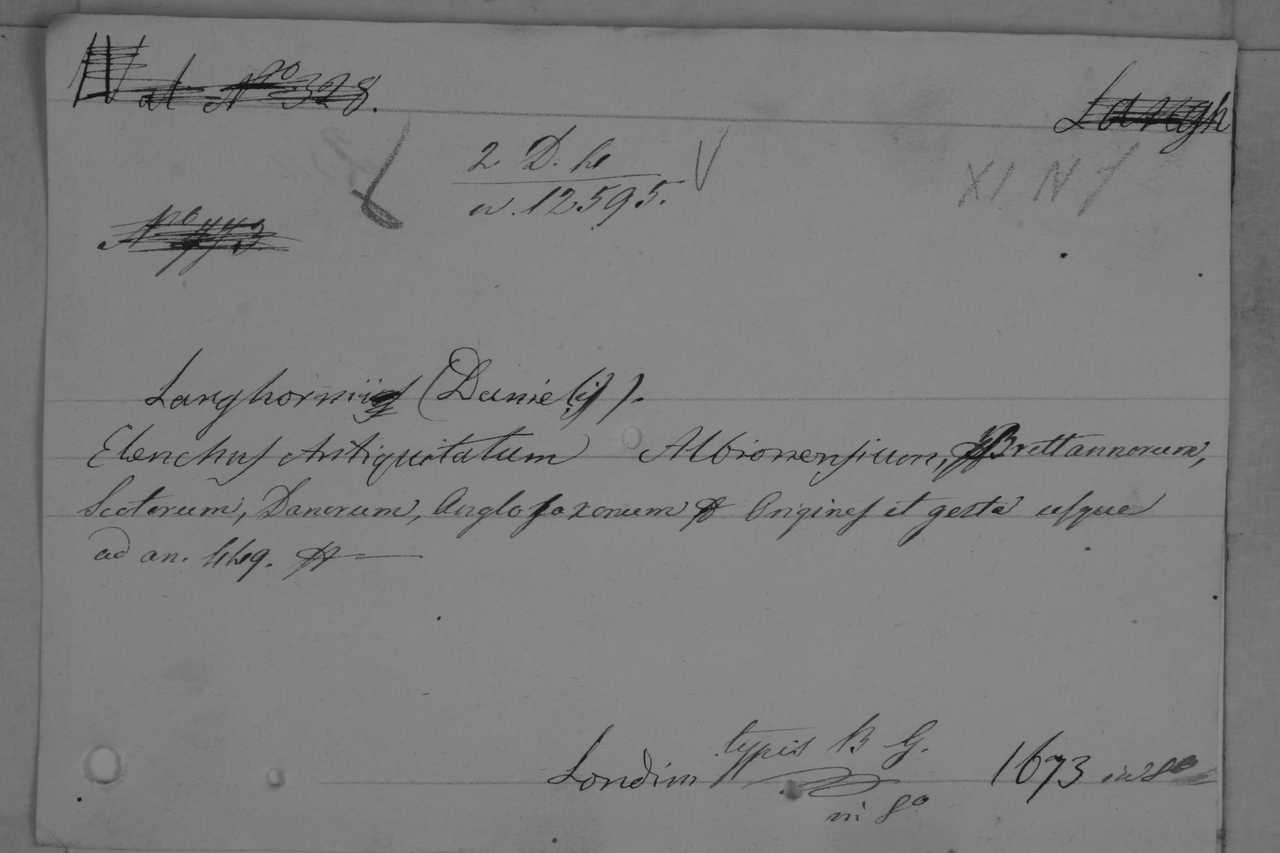 al Nº 328.
Langh
2 D. h
w. 12595.
XI N
Nº 773
Langhornii (Danielis).
Elenchus Antiquitatum Albionensium, Brittannorum,
Scotorum, Danorum, Anglosaxonum & Origines et gesta usque
ad an. 449. &
typis B G.
Londini 1673 in 8º
in 8º